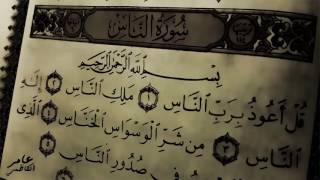 سُورَةُ النَّاسِ
بِسْمِ اللَّهِ الرَّحْمَٰنِ الرَّحِيمِ
قُلْ أَعُوذُ بِرَبِّ النَّاسِ ۝١ مَلِكِ النَّاسِ ۝٢ إِلَٰهِ
النَّاسِ ۝٣ مِن شَرِّ الْوَسْوَاسِ الْخَنَّاسِ ۝٤ الَّذِي
فِي صُدُورِ النَّاسِ
عامر